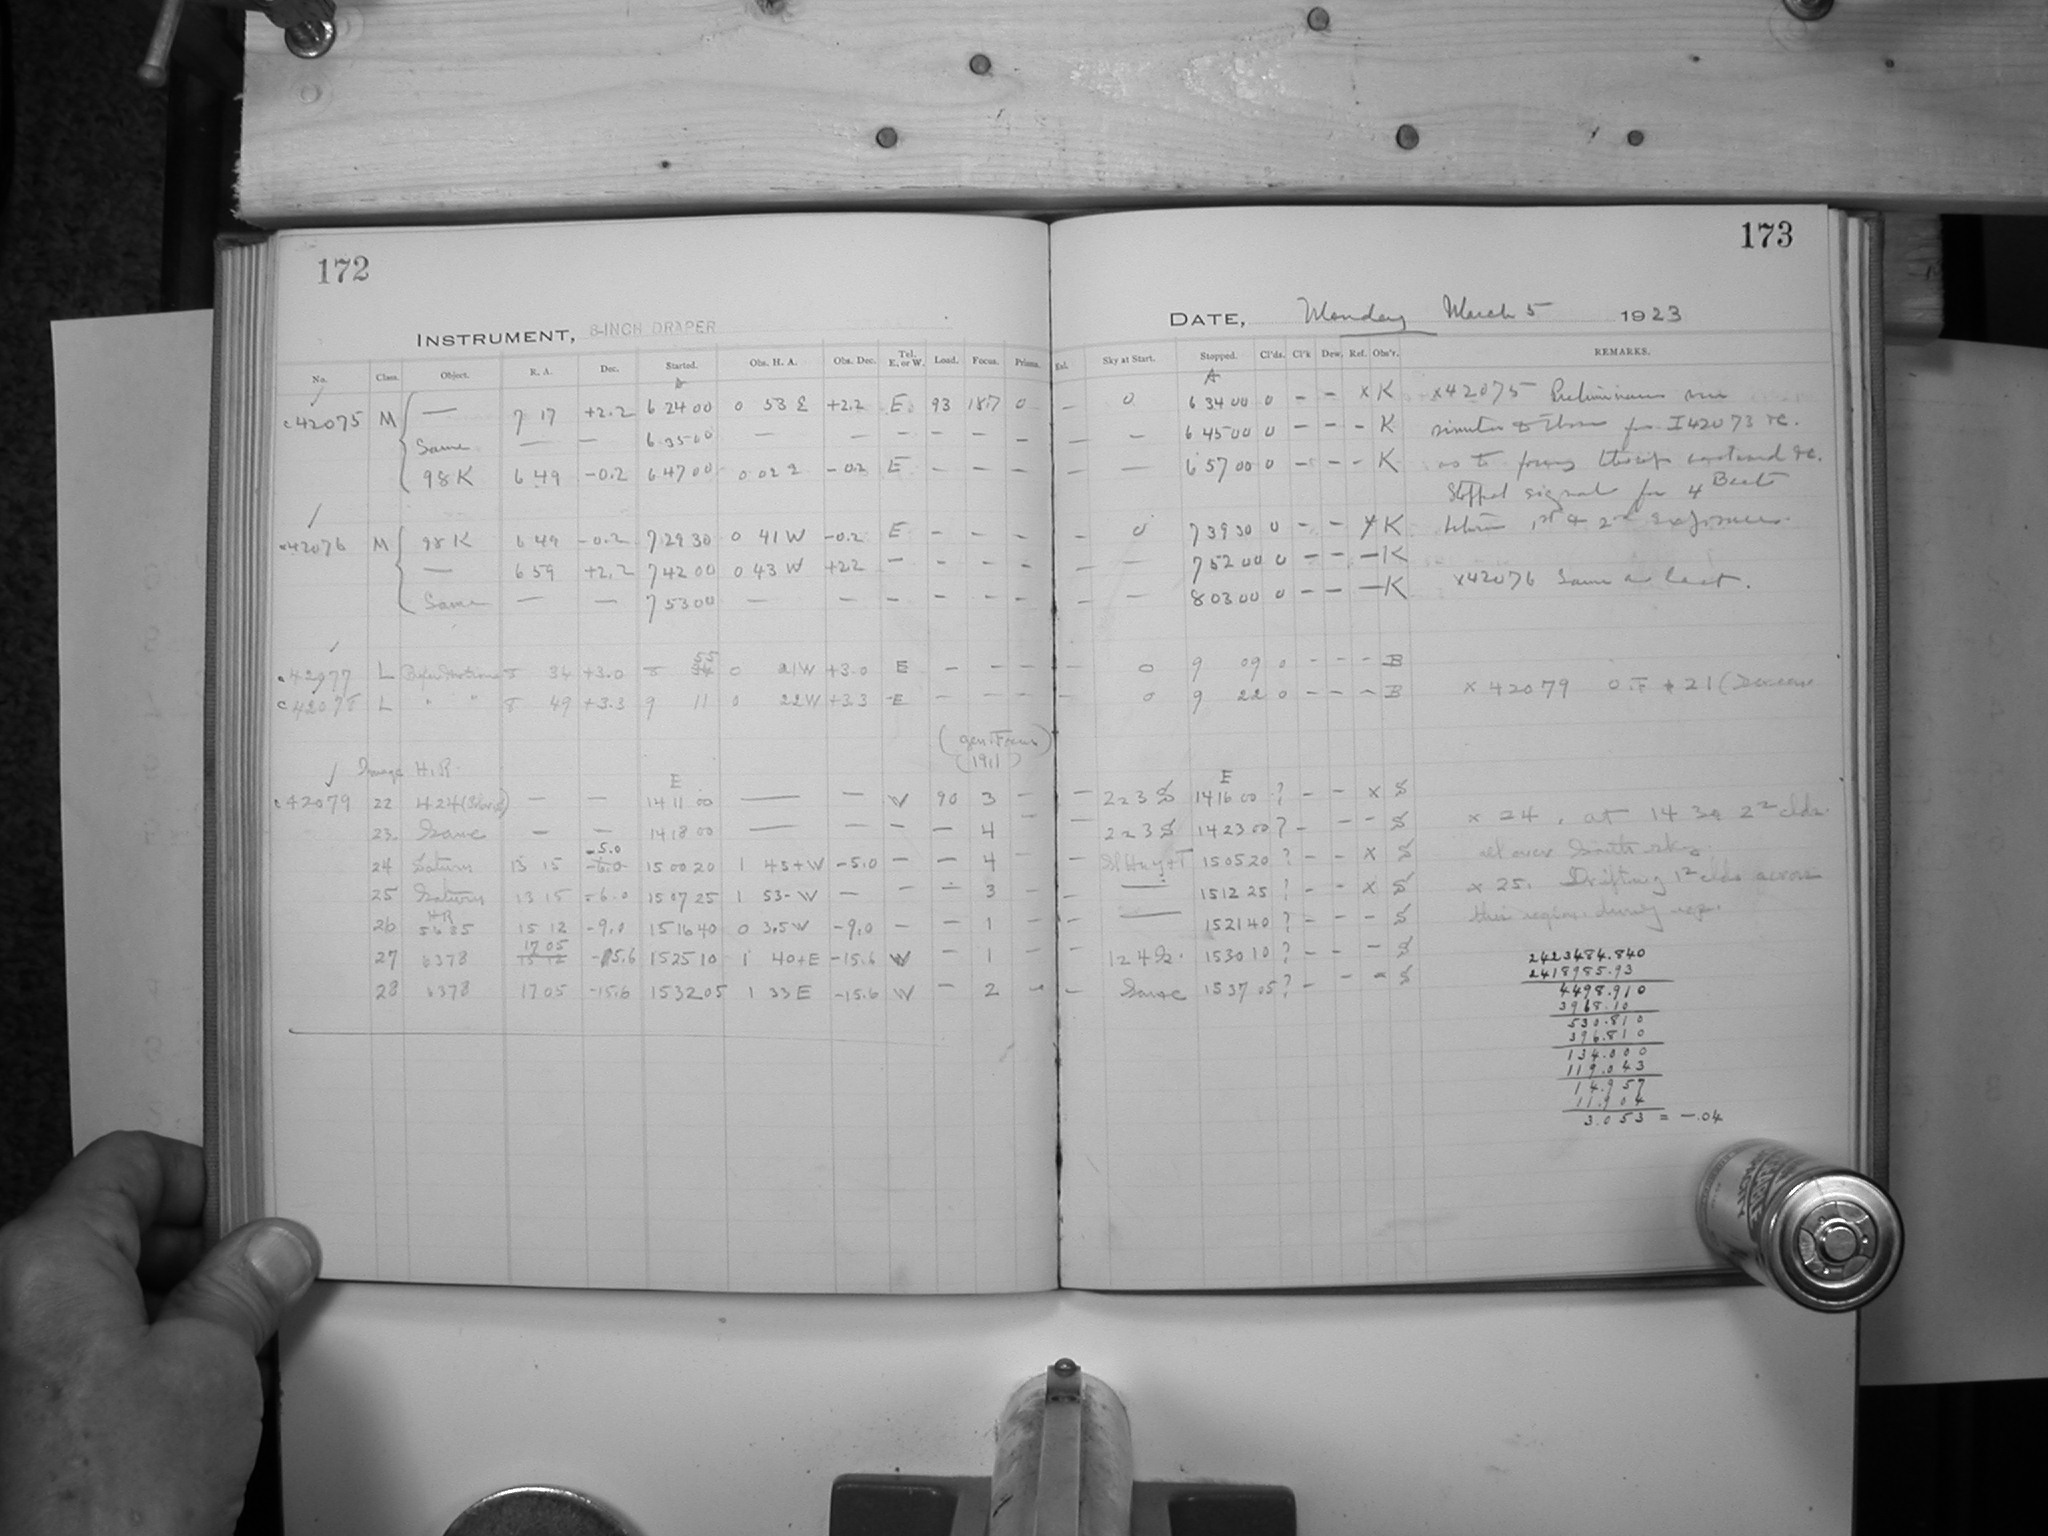 172
INSTRUMENT, 8-INCH DRAPER
No. Class. Object. R. A. Dec. Started. Obs. H. A. Obs. Dec. Tel. E. or W. Load. Focus. Prisms.
A
c42075 M — 7 17 +2.2 6 24 00 0 53 E +2.2 E 93 18.7 0
Same — — 6 35 00 — — — — — —
98 K 6 49 -0.2 6 47 00 0 02 -0.2 E — — —
c42076 M 98 K 6 49 -0.2 7 29 30 0 41 W -0.2 E — — —
— 6 59 +2.2 7 42 00 0 43 W +2.2 — — — —
Same — — 7 53 00 — — — — — —
L 8 34 +3.0 8 55 34 0 21 W +3.0 E — — —
c42078 L " " 8 49 +3.3 9 11 0 22 W +3.3 E — — —
(gen. Focus)
(19.1)
Image H.R. E
c42079 22 424 — — 14 11 00 — — W 90 3 —
23 Same — — 14 18 00 — — — — 4 —
24 Saturn 13 15 -5.0 -6.0 15 00 20 1 45+W -5.0 — — 4 —
25 Saturn 13 15 -6.0 15 07 25 1 53-W — — — 3 —
26 HR 5685 15 12 -9.0 15 16 40 0 3.5 W -9.0 — — 1 —
27 6378 17 05 15 12 -15.6 15 25 10 1 40+E -15.6 W — 1 —
28 6378 17 05 -15.6 15 32 05 1 33 E -15.6 W — 2 —
173
DATE, Monday March 5 1923
Exl. Sky at Start. Stopped. Cl'ds. Cl'k Dew. Ref. Obs'r. REMARKS.
A
— 0 6 34 00 0 — — x K x42075 Preliminary
— — 6 45 00 0 — — — K for I 42073 &c.
— — 6 57 00 0 — — — K as to &c.
Stopped signal for 4 Beats
0 7 39 30 0 — — x K 1st & 2nd exposures.
— — 7 52 00 0 — — — K
— — 8 03 00 0 — — — K x42076 Same as last.
— 0 9 09 0 — — — B
0 9 22 0 — — — B x 42079 O.F. + 21 (Decrease
E
— 2 2 3 S 14 16 00 ? — — x S
— 2 2 3 S 14 23 00 ? — — — S x 24. at 14 30 2² clds.
— 15 05 20 ? — — x S all over South sky.
— — 15 12 25 ? — — x S x 25. Drifting 1² clds across
— — 15 21 40 ? — — — S this region during exp.
— 15 30 10 ? — — — S
— Same 15 37 05 ? — — — S
2423484.840
2418985.93
4498.910
3968.10
530.810
396.810
134.000
119.043
14.957
11.904
3.053 = -.04